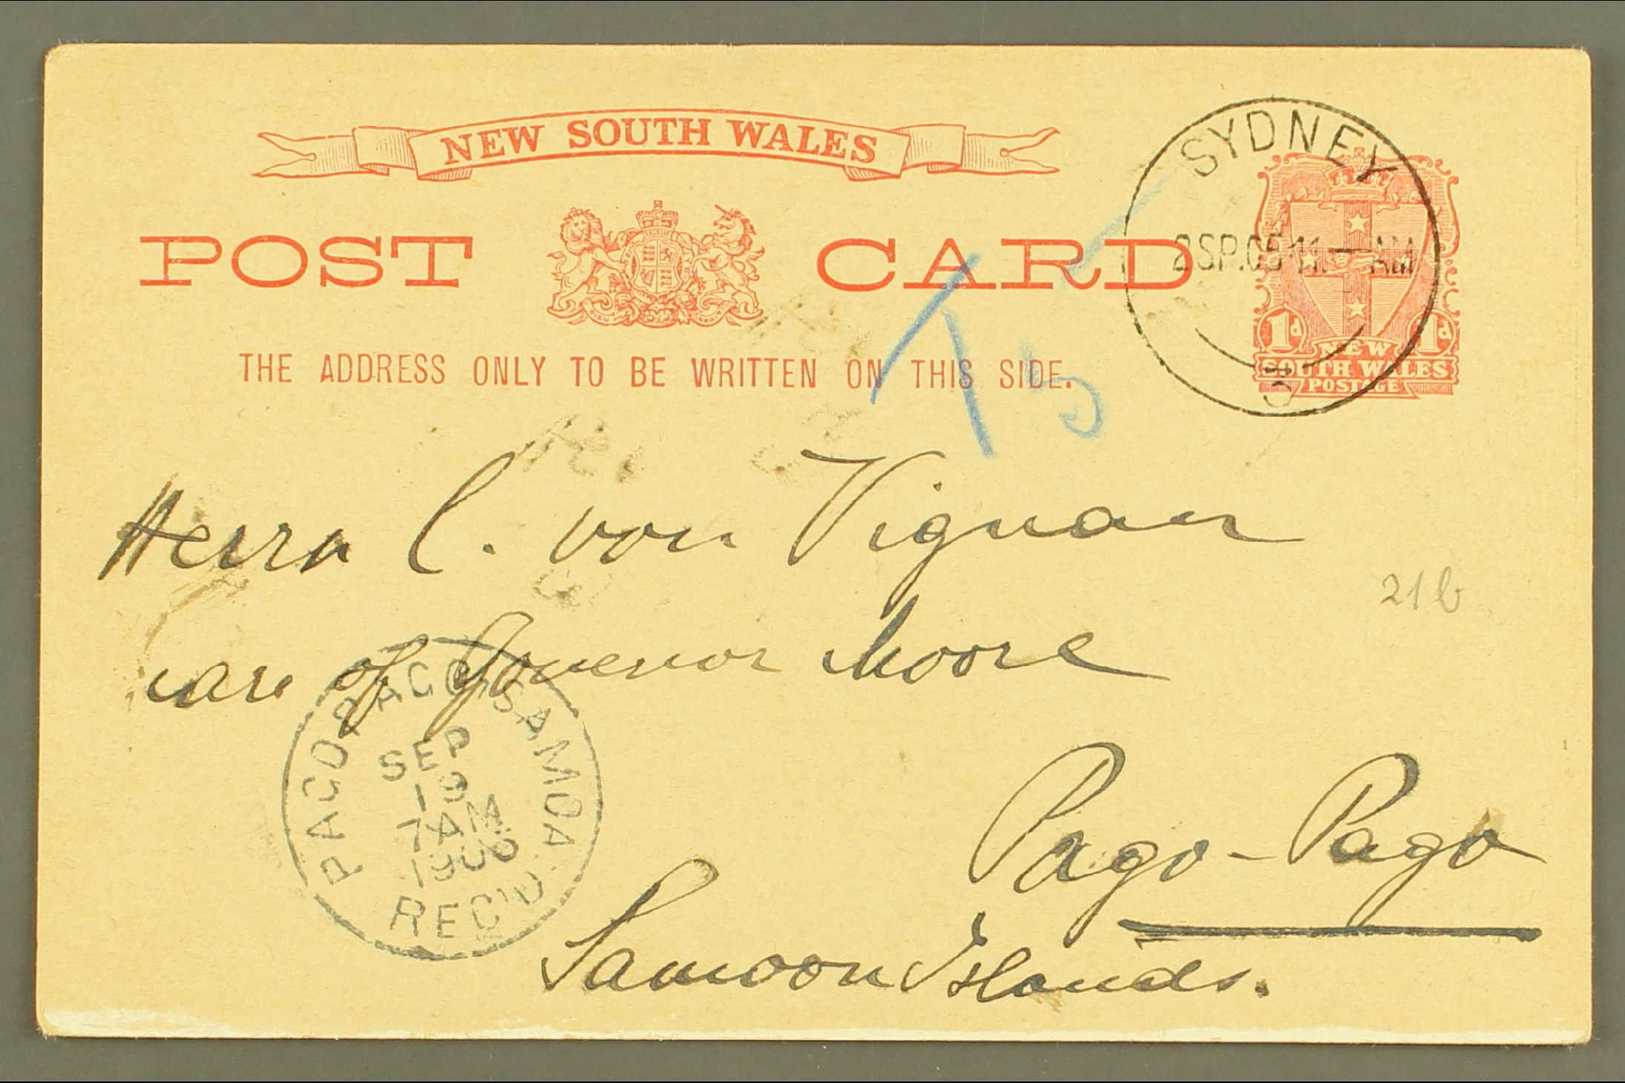 NEW SOUTH WALES
POST CARD
THE ADDRESS ONLY TO BE WRITTEN ON THIS SIDE.
SYDNEY
2 SP.05 11.— AM
1d 1d
NEW
SOUTH WALES
POSTAGE
T
5
Herrn C. von Vignau
care of Govenor Moore
21b
Pago-Pago
Samoan Islands.
PAGO PAGO, SAMOA.
SEP
19
7 AM
190
REC'D.